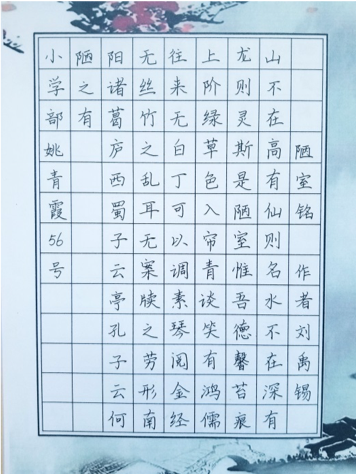 陋室铭 作者刘禹锡
山不在高有仙则名水不在深有
龙则灵斯是陋室惟吾德馨苔痕
上阶绿草色入帘青谈笑有鸿儒
往来无白丁可以调素琴阅金经
无丝竹之乱耳无案牍之劳形南
阳诸葛庐西蜀子云亭孔子云何
陋之有
小学部姚青霞56号